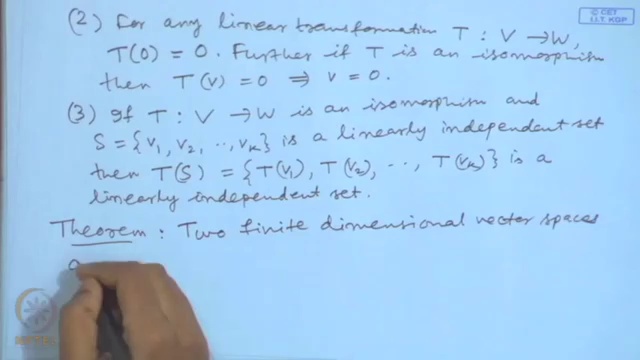 © CET
I.I.T. KGP
(2) For any linear transformation T : V → W,
T(0) = 0. Further if T is an isomorphism
then T(v) = 0 ⟹ v = 0.
(3) If T : V → W is an isomorphism and
S = {v₁, v₂, .., vₖ} is a linearly independent set
then T(S) = {T(v₁), T(v₂), .., T(vₖ)} is a
linearly independent set.
Theorem : Two finite dimensional vector spaces
NPTEL